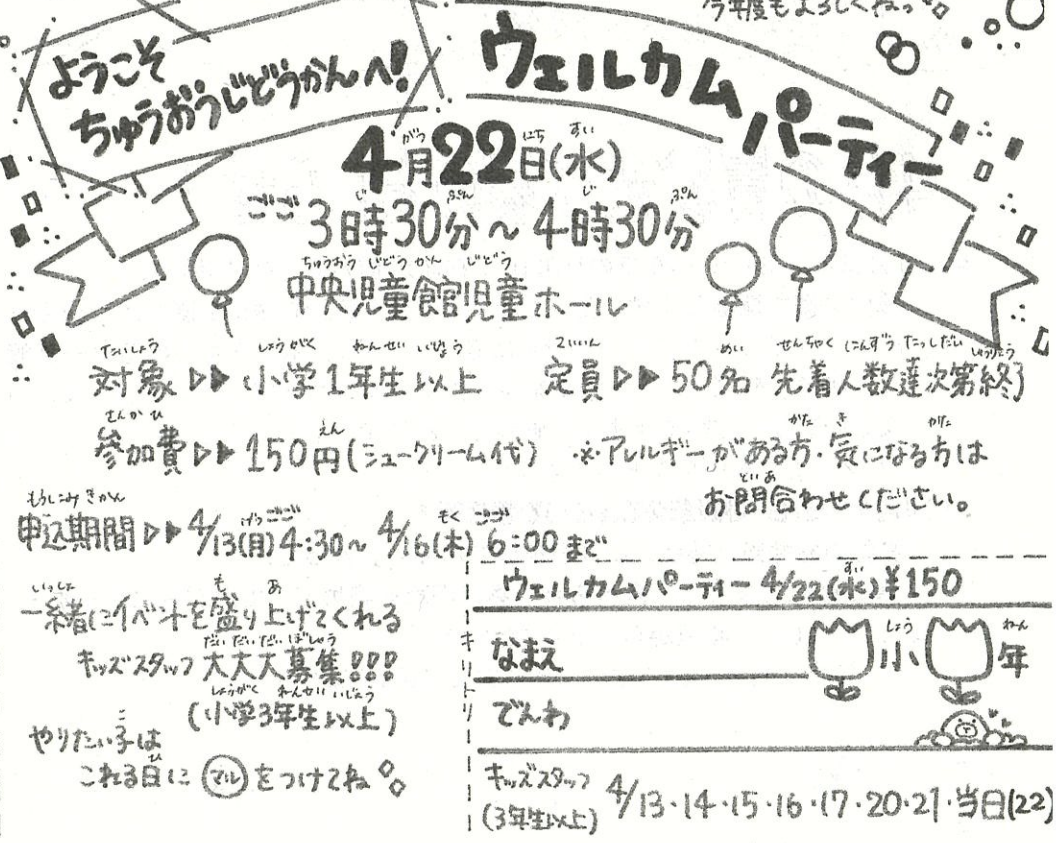 今年度もよろしくねっ
ようこそ
ちゅうおうじどうかんへ!
ウェルカムパーティー
4月22日(水)
ごご 3時30分〜4時30分
中央児童館児童ホール
対象▷▶小学1年生以上 定員▷▶50名 先着人数達次第終了
参加費▷▶150円(シュークリーム代) ※アレルギーがある方・気になる方は
お問合わせください。
申込期間▷▶4/13(月)4:30〜4/16(木)6:00まで
一緒にイベントを盛り上げてくれる
キッズスタッフ大大大募集!!!
(小学3年生以上)
やりたい子は
これる日にマルをつけてね
キリトリ
ウェルカムパーティー 4/22(水)¥150
なまえ 小 年
でんわ
キッズスタッフ
(3年生以上) 4/13・14・15・16・17・20・21・当日(22)